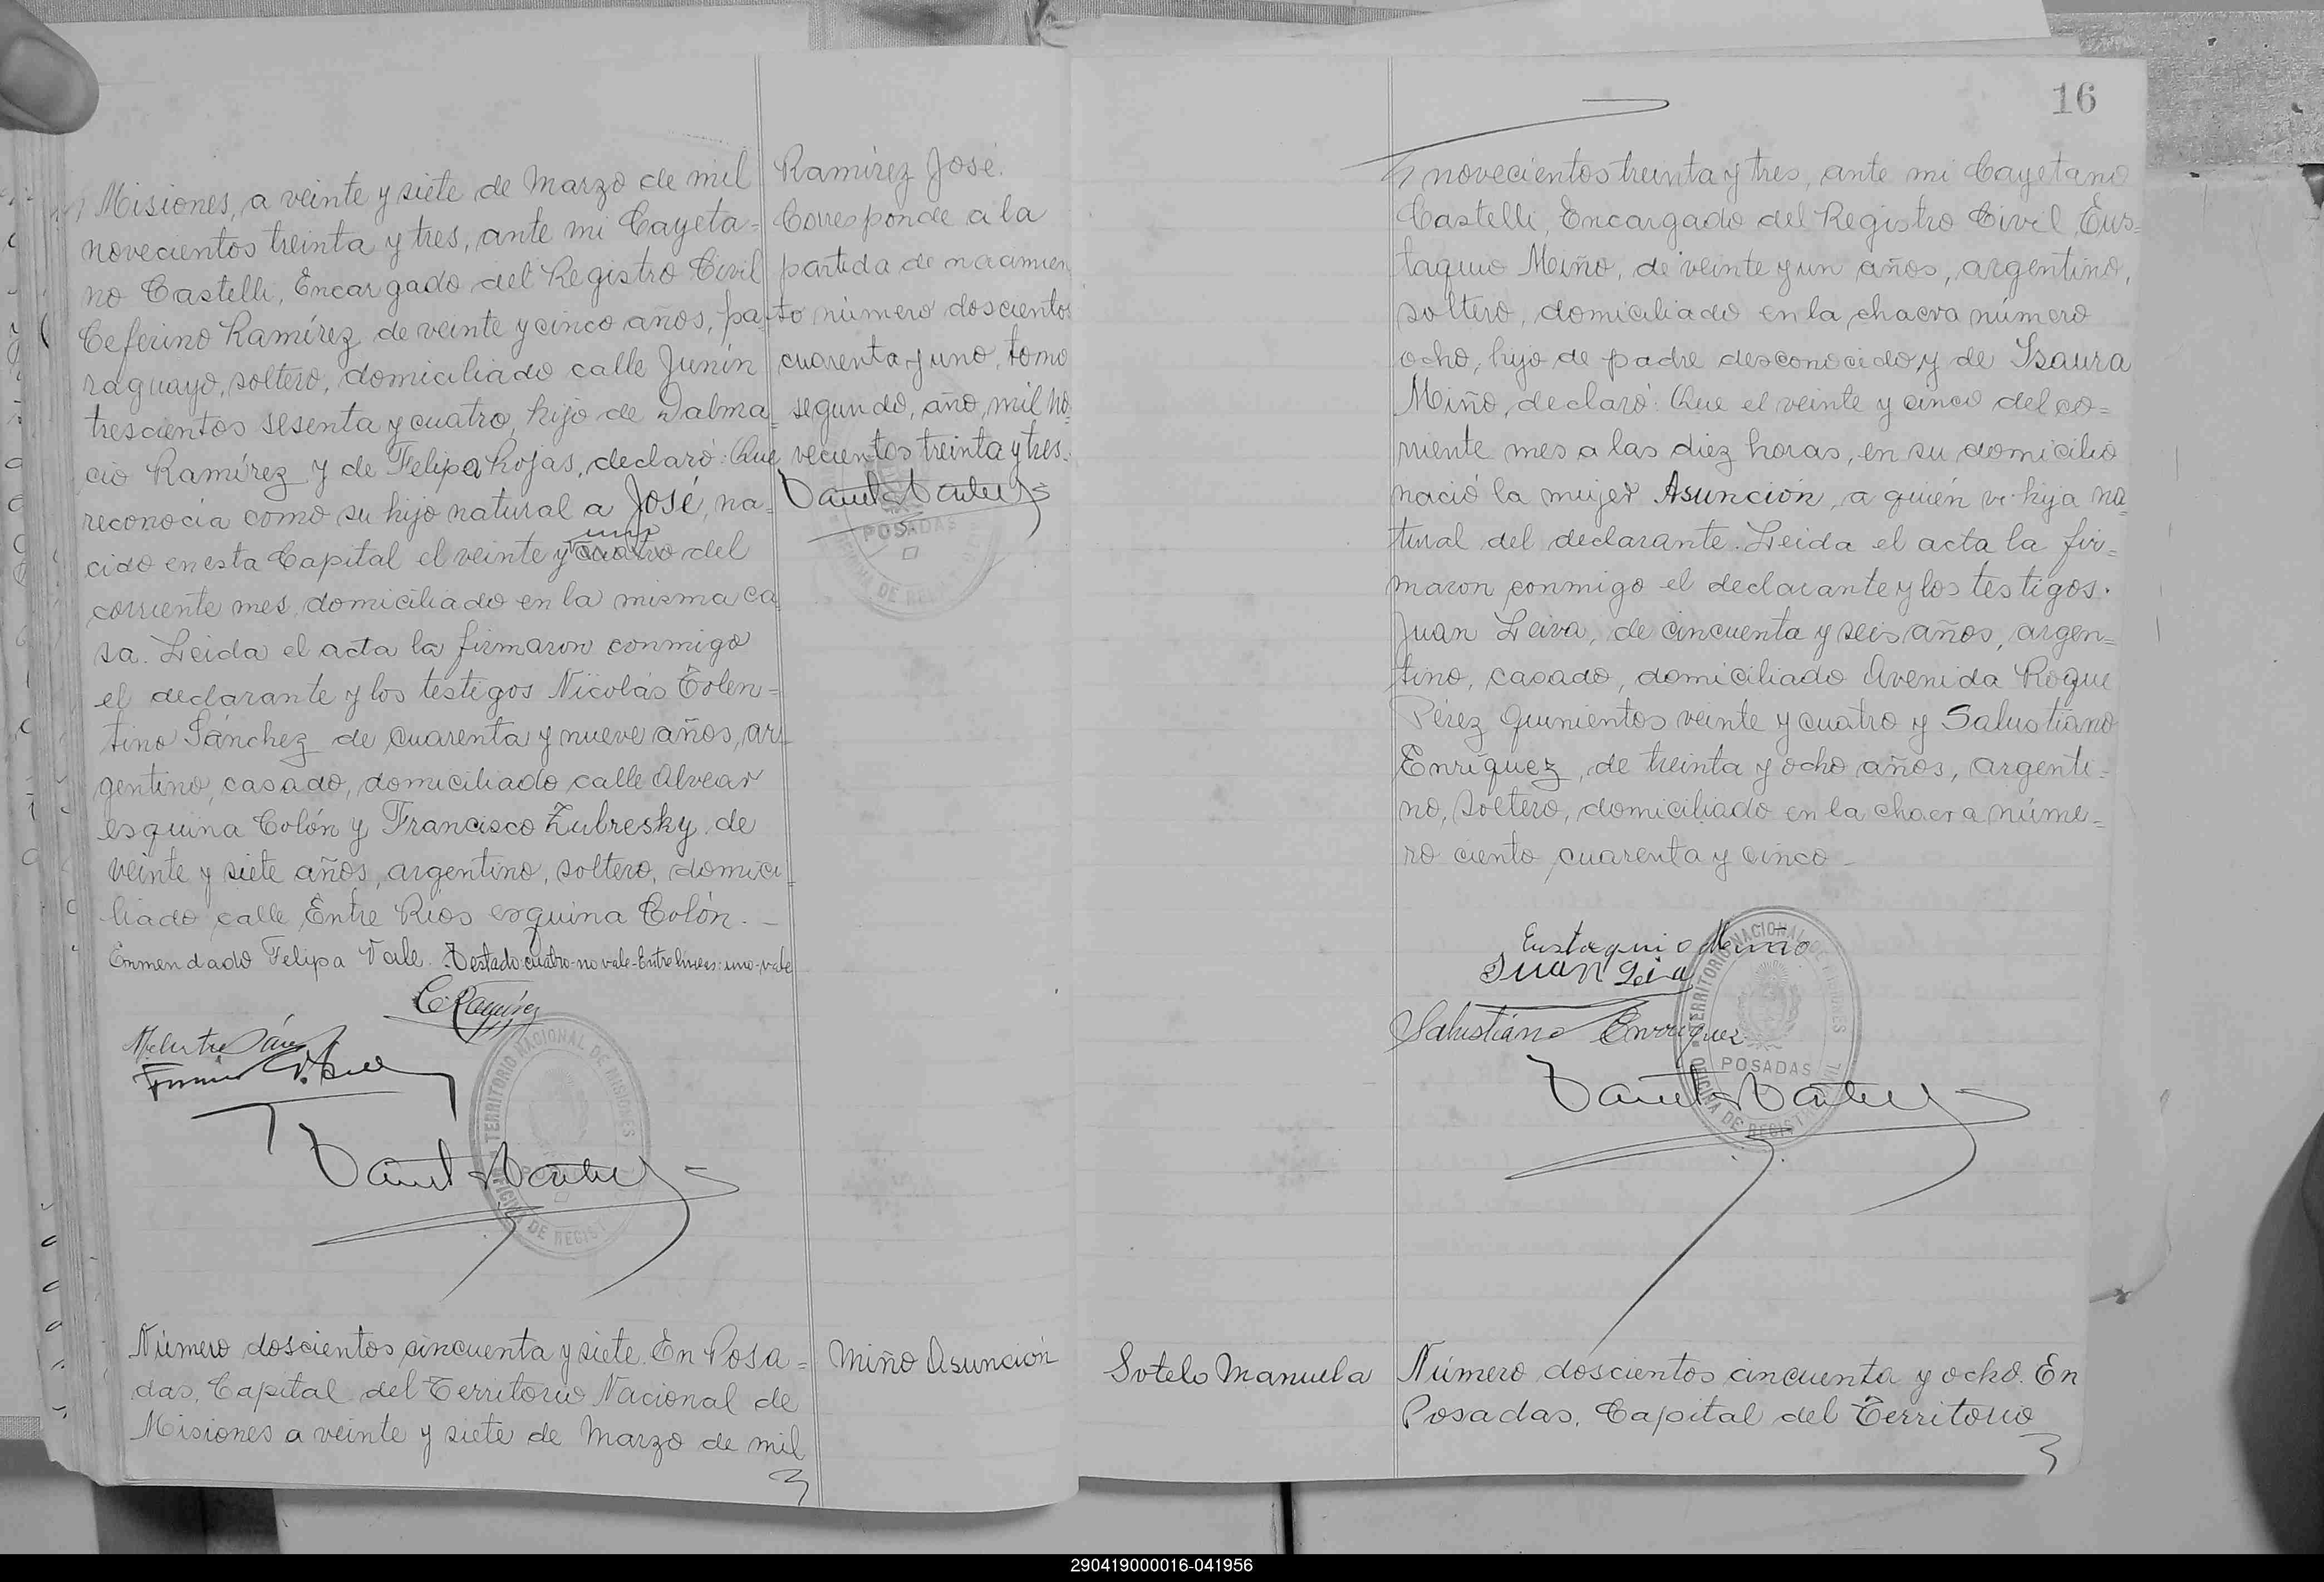 Misiones, a veinte y siete de Marzo de mil
novecientos treinta y tres, ante mi Cayeta=
no Castelli, Encargado del Registro Civil
Ceferino Ramírez de veinte y cinco años, pa-
raguayo, soltero, domiciliado calle Junín
trescientos sesenta y cuatro, hijo de Dalma=
cio Ramírez y de Felipa Rojas, declaró: Que
reconocía como su hijo natural a José, na=
uno
cido en esta Capital el veinte y cuatro del
corriente mes, domiciliado en la misma ca
sa. Leida el acta la firmaron conmigo
el declarante y los testigos Nicolás Tolen=
tino Sánchez de cuarenta y nueve años, ar-
gentino, casado, domiciliado calle Alvear
esquina Colón y Francisco Zubresky, de
veinte y siete años, argentino, soltero, domici-
liado calle Entre Rios esquina Colón. -
Enmendado Felipa Vale. Testado: cuatro-no vale-Entre lineas: uno-vale
C. Ramírez
TERRITORIO NACIONAL DE MISIONES
OFICINA DE REGIST
Número doscientos cincuenta y siete. En Posa=
das, Capital del Territorio Nacional de
Misiones a veinte y siete de Marzo de mil
Ramírez José.
Corresponde a la
partida de nacimien
to número doscientos
cuarenta y uno, tomo
segundo, año, mil no=
vecientos treinta y tres.
POSADAS
Miño Asunción
16
novecientos treinta y tres, ante mi Cayetano
Castelli, Encargado del Registro Civil, Eus=
taquio Miño, de veinte y un años, argentino,
soltero, domiciliado en la chacra número
ocho, hijo de padre desconocido y de Isaura
Miño, declaró: Que el veinte y cinco del co=
rriente mes a las diez horas, en su domicilio
nació la mujer Asunción, a quién vi hija na
tural del declarante. Leida el acta la fir=
maron conmigo el declarante y los testigos.
Juan Leiva, de cincuenta y seis años, argen=
tino, casado, domiciliado Avenida Roque
Pérez quinientos veinte y cuatro y Salustiano
Enríquez, de treinta y ocho años, argenti=
no, soltero, domiciliado en la chacra núme=
ro ciento cuarenta y cinco -
Eustaquio Miño
Juan Leiva
Salustiano Enrriquez
TERRITORIO NACIONAL DE MISIONES
POSADAS
OFICINA DE REGISTRO CIVIL
Sotelo Manuela
Número doscientos cincuenta y ocho. En
Posadas, Capital del Territorio
290419000016-041956